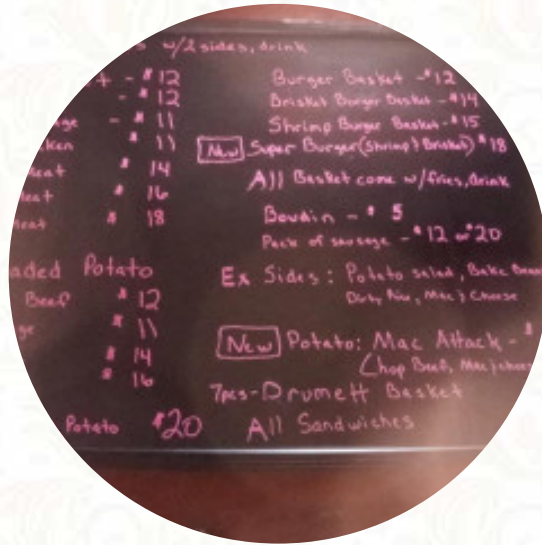 w/2 sides, drink
- $12
- $12
- $11
$11
$14
$16
$18
Potato
Beef $12
$11
$14
$16
Potato $20
Burger Basket - $12
Brisket Burger Basket - $14
Shrimp Burger Basket - $15
New Super Burger (Shrimp & Brisket) $18
All Basket come w/fries, drink
Boudin - $5
Pack of sausage - $12 or $20
Ex Sides: Potato salad, Bake
Dirty Rice, Mac & Cheese
New Potato: Mac Attack -
(Chop Beef, Mac
7pcs - Drumett Basket
All Sandwiches